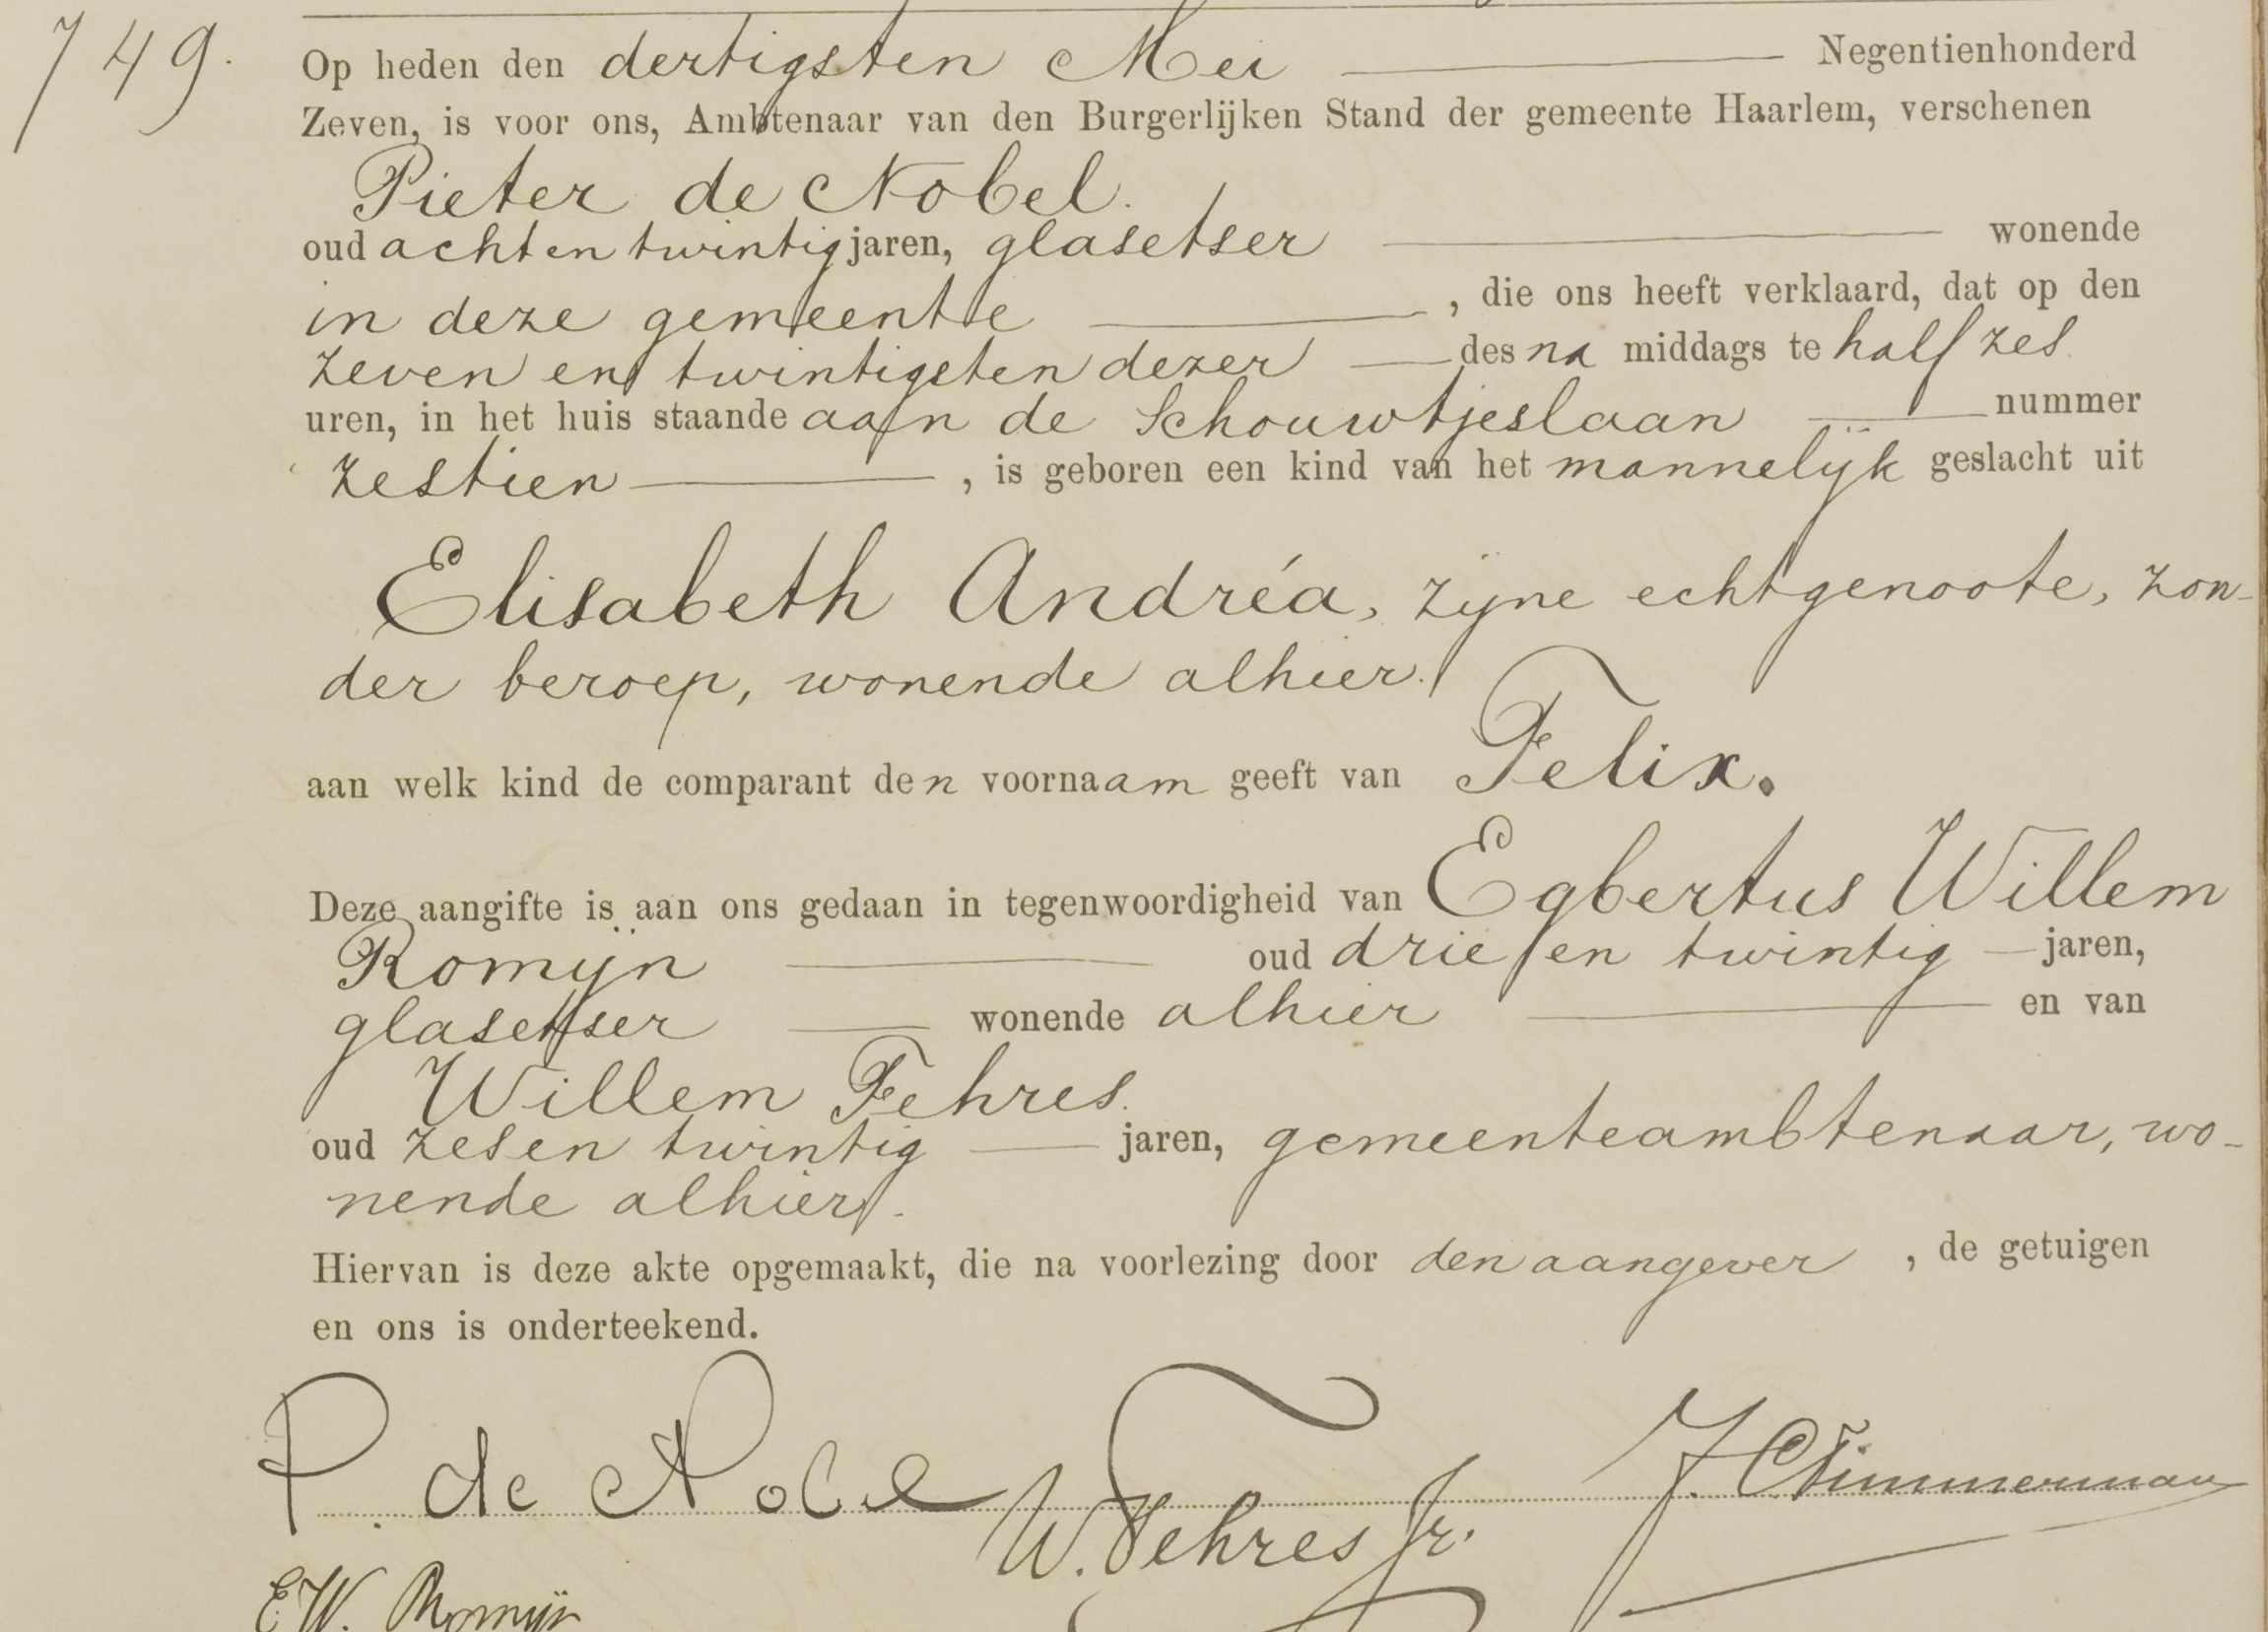 749.
Op heden den dertigsten Mei Negentienhonderd
Zeven, is voor ons, Ambtenaar van den Burgerlijken Stand der gemeente Haarlem, verschenen
Pieter de Nobel.
oud acht en twintig jaren, glasetser wonende
in deze gemeente , die ons heeft verklaard, dat op den
zeven en twintigsten dezer des na middags te half zes
uren, in het huis staande aan de Schouwtjeslaan nummer
zestien , is geboren een kind van het mannelijk geslacht uit
Elisabeth Andréa, zijne echtgenoote, zon-
der beroep, wonende alhier.
aan welk kind de comparant den voornaam geeft van Felix.
Deze aangifte is aan ons gedaan in tegenwoordigheid van Egbertus Willem
Romijn oud drie en twintig jaren,
glasetser wonende alhier en van
Willem Fehres.
oud zes en twintig jaren, gemeenteambtenaar, wo-
nende alhier.
Hiervan is deze akte opgemaakt, die na voorlezing door den aangever , de getuigen
en ons is onderteekend.
P. de Nobel W. Fehres Jr. J. C. Timmerman
E W. Romijn